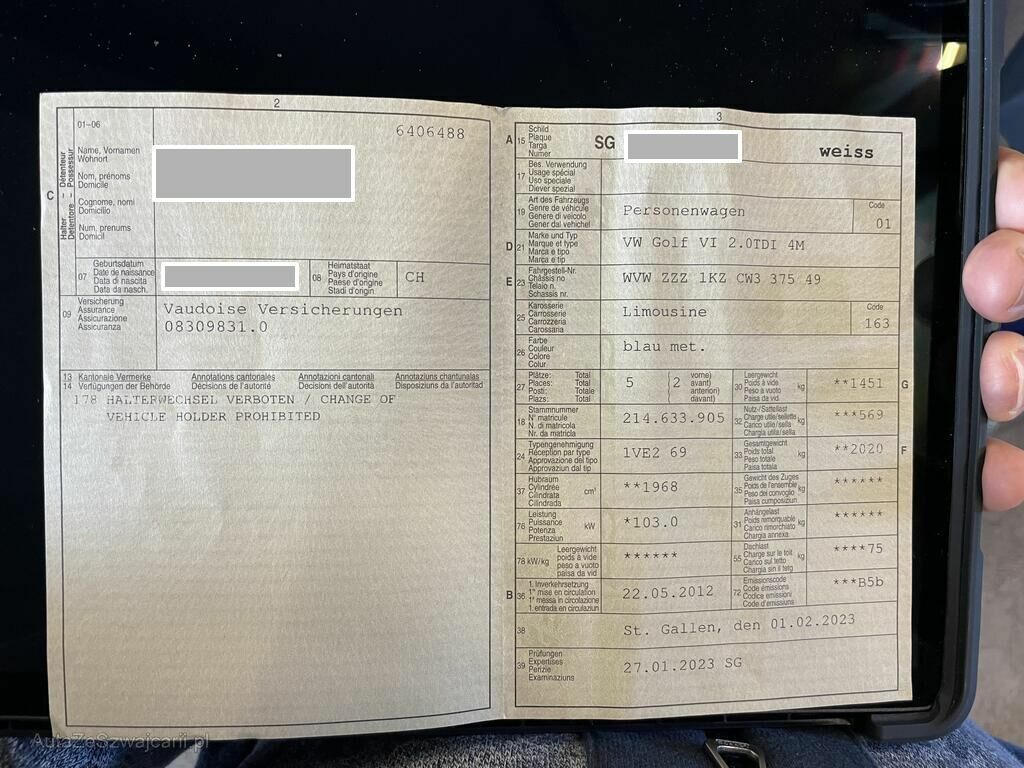 2
01-06
6406488
Détenteur – Possessur
Halter – Detentore
C
Name, Vornamen
Wohnort
Nom, prénoms
Domicile
Cognome, nomi
Domicilio
Num, prenums
Domicil
07
Geburtsdatum
Date de naissance
Data di nascita
Data da nasch.
08
Heimatstaat
Pays d'origine
Paese d'origine
Stadi d'origin
CH
09
Versicherung
Assurance
Assicurazione
Assicuranza
Vaudoise Versicherungen
08309831.0
13 Kantonale Vermerke Annotations cantonales Annotazioni cantonali Annotaziuns chantunalas
14 Verfügungen der Behörde Décisions de l'autorité Decisioni dell'autorità Disposiziuns da l'autoritad
178 HALTERWECHSEL VERBOTEN / CHANGE OF
VEHICLE HOLDER PROHIBITED
3
A 15
Schild
Plaque
Targa
Numer
SG
weiss
17
Bes. Verwendung
Usage spécial
Uso speciale
Diever spezial
19
Art des Fahrzeugs
Genre de véhicule
Genere di veicolo
Gener dal vehichel
Personenwagen
Code
01
D 21
Marke und Typ
Marque et type
Marca e tipo
Marca e tip
VW Golf VI 2.0TDI 4M
E 23
Fahrgestell-Nr.
Châssis no
Telaio n.
Schassis nr.
WVW ZZZ 1KZ CW3 375 49
25
Karosserie
Carrosserie
Carrozzeria
Carossaria
Limousine
Code
163
26
Farbe
Couleur
Colore
Colur
blau met.
27
Plätze: Total
Places: Total
Posti: Totale
Plazs: Total
5 (2
vorne)
avant)
anteriori)
davant)
30
Leergewicht
Poids à vide
Peso a vuoto
Paisa da vid
kg
**1451
G
18
Stammnummer
N° matricule
N. di matricola
Nr. da matricla
214.633.905
32
Nutz-/Sattellast
Charge utile/sellette
Carico utile/sella
Chargia utila/sella
kg
***569
24
Typengenehmigung
Réception par type
Approvazione del tipo
Approvaziun dal tip
1VE2 69
33
Gesamtgewicht
Poids total
Peso totale
Paisa totala
kg
**2020
F
37
Hubraum
Cylindrée
Cilindrata
Cilindrada
cm³
**1968
35
Gewicht des Zuges
Poids de l'ensemble
Peso del convoglio
Paisa cumposiziun
kg
******
76
Leistung
Puissance
Potenza
Prestaziun
kW
*103.0
31
Anhängelast
Poids remorquable
Carico rimorchiato
Chargia annexa
kg
******
78 kW/kg
Leergewicht
poids à vide
peso a vuoto
paisa da vid
******
55
Dachlast
Charge sur le toit
Carico sul tetto
Chargia sin il tetg
kg
****75
B 36
1. Inverkehrsetzung
1re mise en circulation
1a messa in circolazione
1. entrada en circulaziun
22.05.2012
72
Emissionscode
Code émissions
Codice emissioni
Code d'emissiuns
***B5b
38
St. Gallen, den 01.02.2023
39
Prüfungen
Expertises
Perizie
Examinaziuns
27.01.2023 SG
AutaZeSzwajcarii.pl